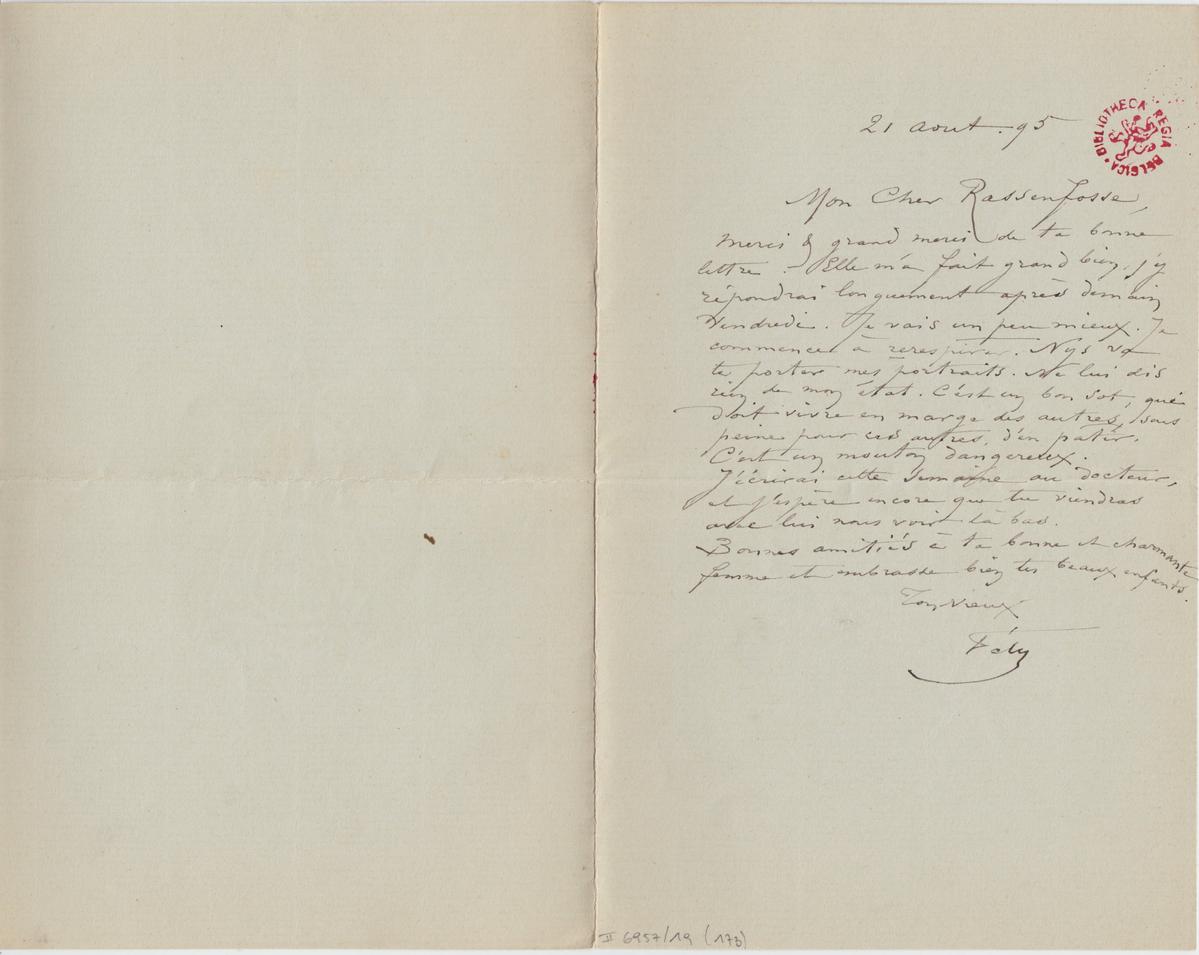 21 aout. 95
BIBLIOTHECA REGIA BELGICA
Mon Cher Rassenfosse,
Merci & grand merci de ta bonne
lettre. – Elle m'a fait grand bien, j'y
répondrai longuement après demain
Vendredi. Je vais un peu mieux. Je
commence à rerespirer. Nys va
te porter mes portraits. Ne lui dis
rien de mon état. C'est un bon sot, qui
doit vivre en marge des autres, sous
peine pour ces autres, d'en patir.
C'est un mouton dangereux.
J'écrirai cette semaine au docteur,
et j'espère encore que tu viendras
avec lui nous voir là bas.
Bonnes amitiés à ta bonne et charmante
femme et embrasse bien tes beaux enfants.
Ton vieux
Fély
II 6957/19 (173)